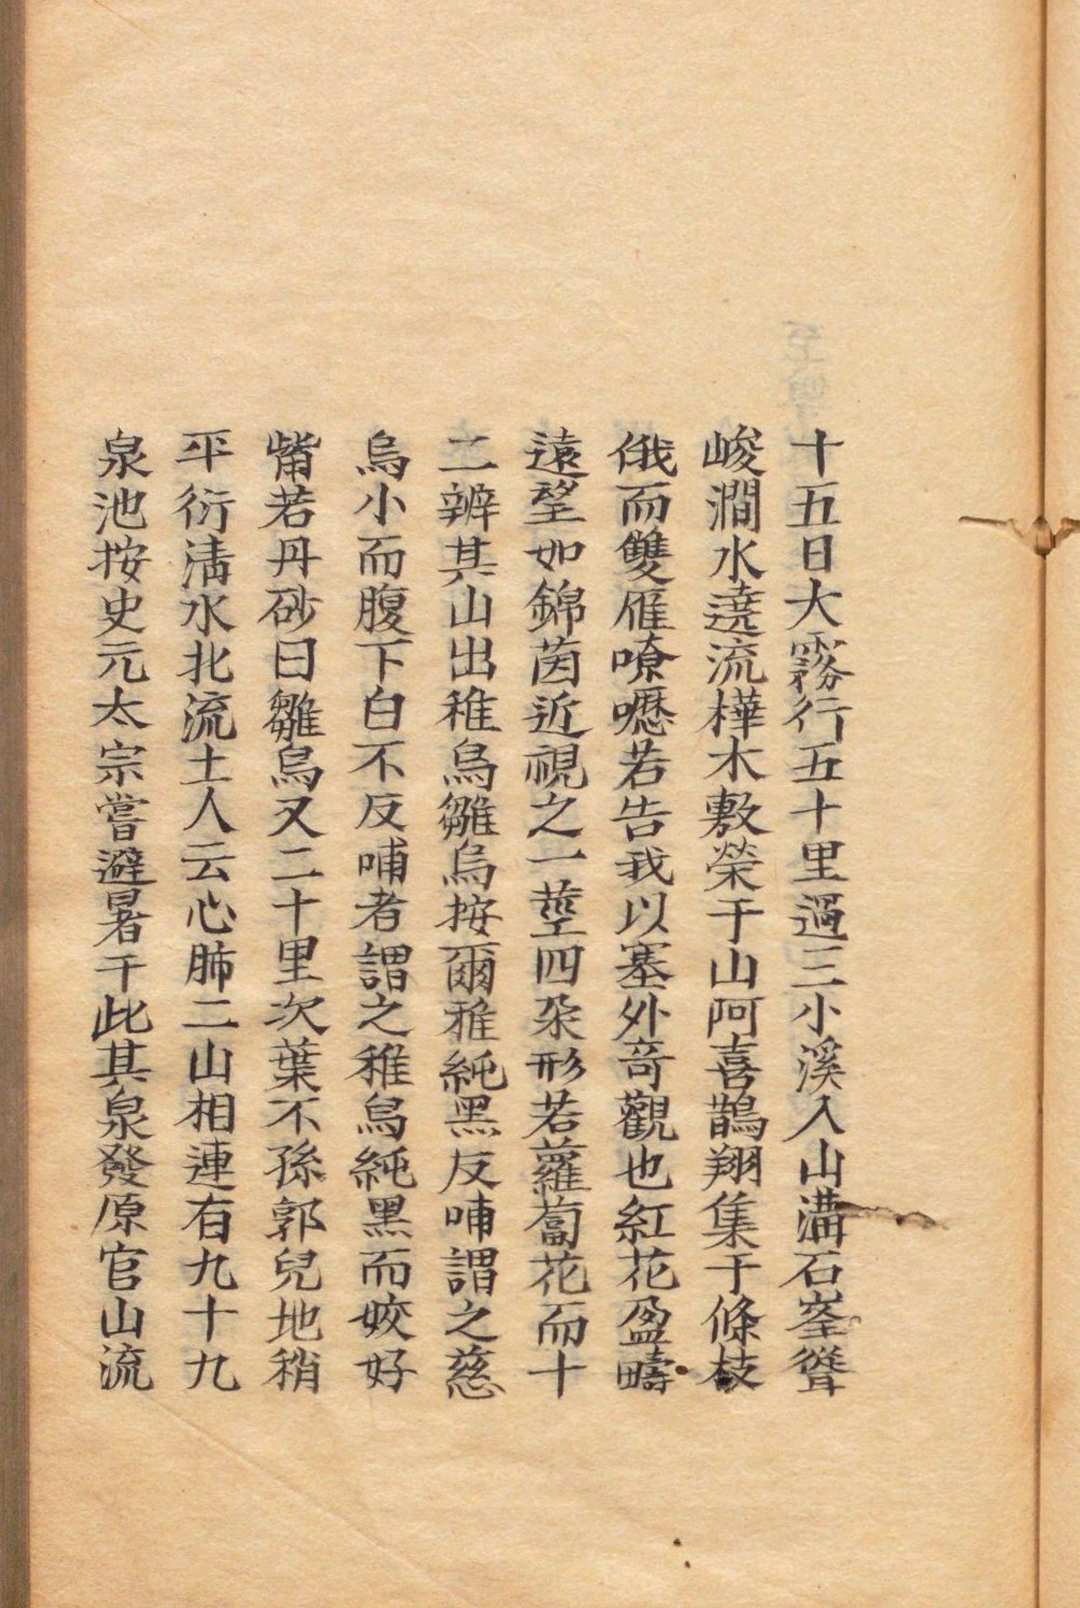 十五日大霧行五十里過三小溪入山溝石峯聳
峻澗水遶流樺木敷榮于山阿喜鵲翔集于條枝
俄而雙雁嘹嚦若告我以塞外奇觀也紅花盈疇
遠望如錦茵近視之一莖四朵形若蘿蔔花而十
二辨其山出稚烏雛烏按爾雅純黑反哺謂之慈
烏小而腹下白不反哺者謂之稚烏純黑而姣好
觜若丹砂曰雛烏又二十里次葉不孫郭兒地稍
平衍淸水北流土人云心肺二山相連有九十九
泉池按史元太宗嘗避暑于此其泉發原官山流